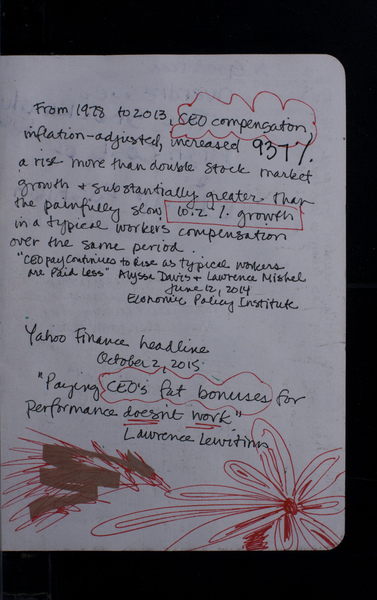 From 1978 to 2013, CEO compensation,
inflation-adjusted, increased 937%
a rise more than double stock market
growth & substantially greater than
the painfully slow 10.2% growth
in a typical workers compensation
over the same period.
"CEO pay Continues to Rise as typical workers
are Paid Less" Alyssa Davis & Lawrence Mishel
June 12, 2014
Economic Policy Institute
Yahoo Finance headline
October 2, 2015
"Paying CEO's fat bonuses for
performance doesn't work"
Lawrence Lewitinn